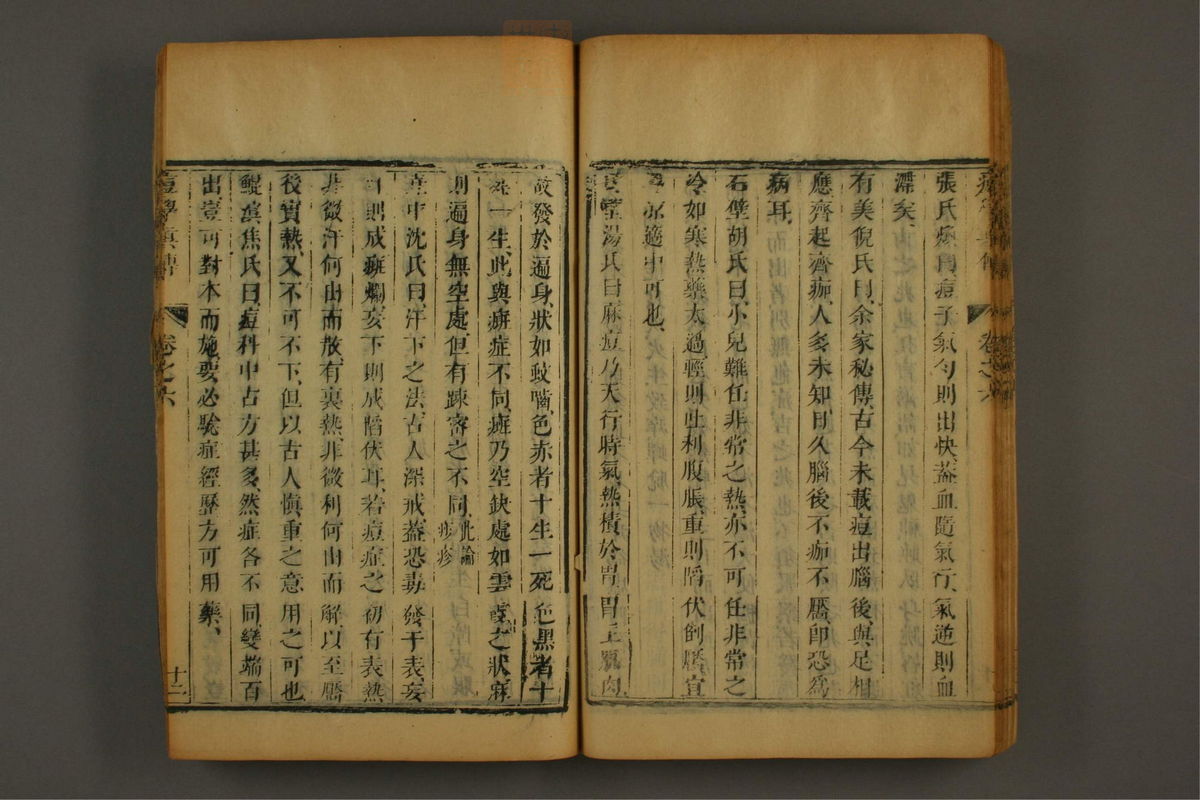 張氏煥曰痘子氣勻則出快蓋血隨氣行氣逆則血
滯矣
有美倪氏曰余家秘傳古今未載痘出腦後與足相
應齊起齊痂人多未知日久腦後不痂不靨卽恐爲
病耳
石壁胡氏曰小兒難任非常之熱亦不可任非常之
冷如寒熱藥太過輕則吐利腹脹重則陷伏倒靨宜
適中可也
湯氏曰麻痘乃天行時氣熱積於胃胃主肌肉
故發於遍身狀如蚊嚙色赤者十生一死色黑者十
死一生此與㿀症不同㿀乃空缺處如雲霞之狀麻
則遍身無空處但有疎密之不同此論疹疹
中沈氏曰汗下之法古人深戒蓋恐毒發于表妄
汗則成斑爛妄下則成陷伏耳若痘症之初有表熱
非微汗何由而散有裏熱非微利何由而解以至靨
後實熱又不可不下但以古人愼重之意用之可也
鯤溟焦氏曰痘科中古方甚多然症各不同變端百
出豈可對本而施要必驗症經歷方可用藥
卷之六
十二
卷之六